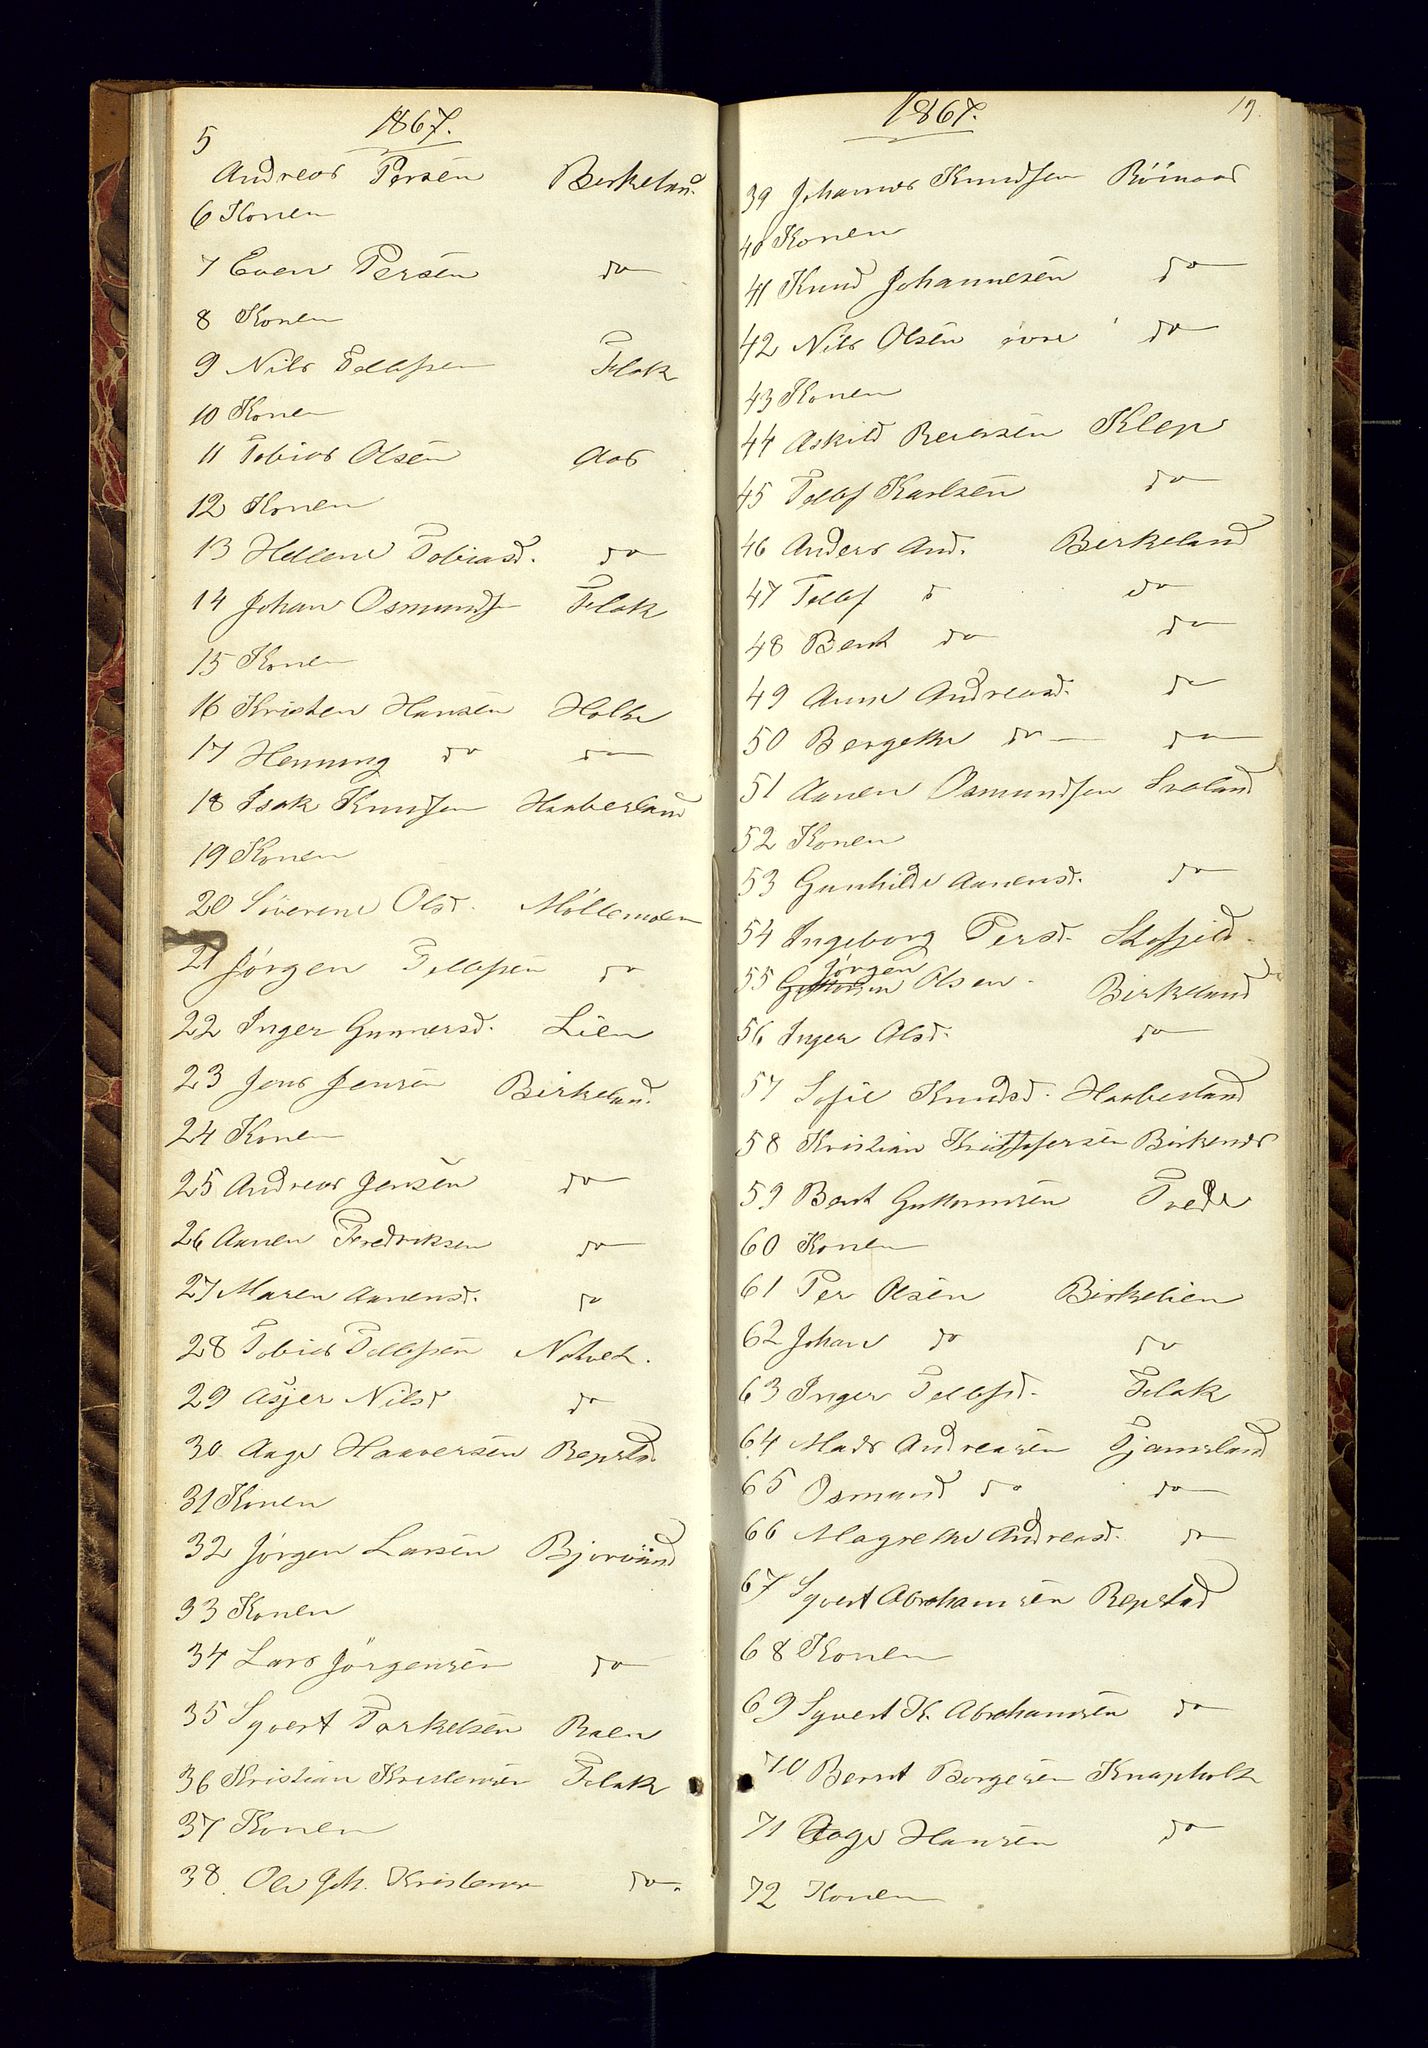 1867.
5 Andreas Persen Birkeland
6 Konen
7 Even Persen do
8 Konen
9 Nils Tellefsen Flak
10 Konen
11 Tobias Olsen Aas
12 Konen
13 Hellene Tobiasd. do
14 Johan Osmunds Flak
15 Konen
16 Kristen Hansen Holte
17 Henning do do
18 Isak Knudsen Haaberland
19 Konen
20 Severene Olsd. Möllemoen
21 Jørgen Tellefsen do
22 Inger Gunnersd. Lien
23 Jens Jensen Birkeland
24 Konen
25 Andreas Jensen do
26 Aanen Fredriksen do
27 Maren Aanensd. do
28 Tobias Tellefsen
29 Asjer Nilsd do
30 Aage Haaversen Repstad
31 Konen
32 Jørgen Larsen Bjorvand
33 Konen
34 Lars Jörgensen do
35 Syvert Torkelsen Roen
36 Kristian Kristensen Flak
37 Konen
38 Ole Joh. Kristensen do.
1867. 19.
39 Johannes Knudsen Röinaas
40 Konen
41 Knud Johannesen do
42 Nils Olsen do
43 Konen
44 Askild Reiersen Klep
45 Tellef Karlsen do
46 Anders And. Birkeland
47 Tellef d do
48 Bent do do
49 Anne Andreasd. do
50 Bergethe do do
51 Aanen Osmundsen Sveland
52 Konen
53 Gunhilde Aanensd. do
54 Ingeborg Persd.
55 Jørgen Olsen. Birkeland
56 Inger Olsd. do
57 Sofie Knudsd. Haaberland
58 Kristian Kristofersen Birkenes
59 Bent Guttormsen Tvede
60 Konen
61 Per Olsen Birkelien
62 Johan do do
63 Inger Tellefsd. Flak
64 Mads Andreasen Tjamsland
65 Osmund do do
66 Magrethe Andreasd. do
67 Syvert Abrahamsen Repstad
68 Konen
69 Syvert K. Abrahamsen do
70 Bernt Borgesen Knapholt
71 Aage Hansen do
72 Konen